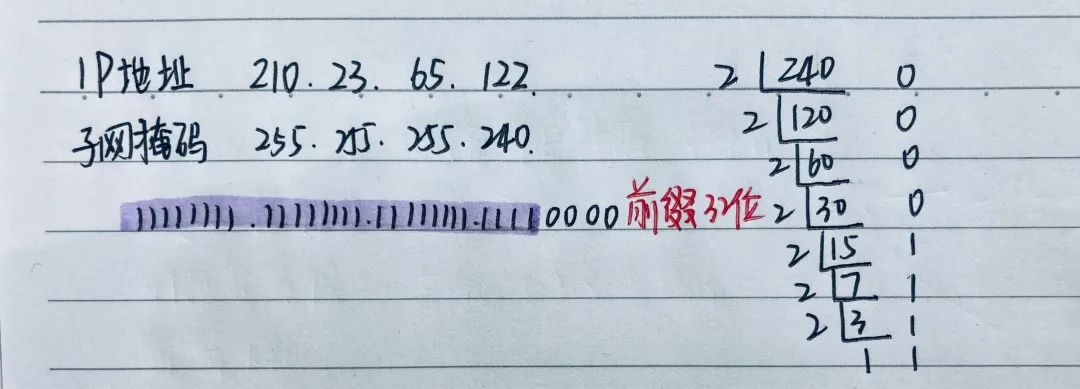 IP地址 210. 23. 65. 122.
子网掩码 255. 255. 255. 240.
11111111.11111111.11111111.11110000 前缀32位
2 240 0
2 120 0
2 60 0
2 30 0
2 15 1
2 7 1
2 3 1
1 1